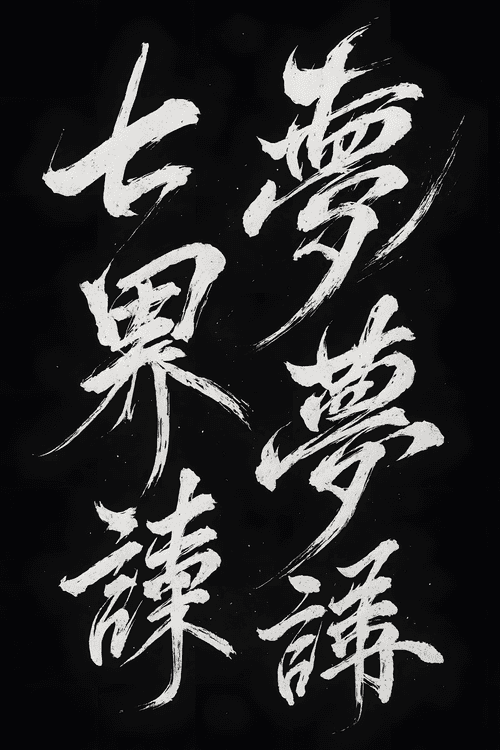 夢夢講
七界諫